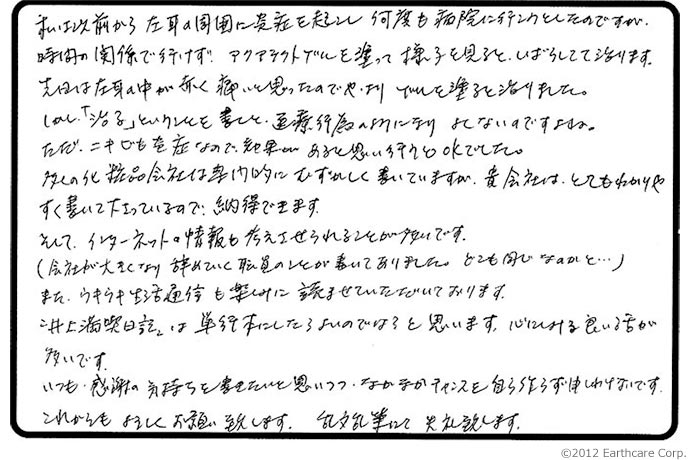 実は以前から左耳の周囲に炎症を起こし何度も病院に行こうとしたのですが、
時間の関係で行けず、アクアテクトゲルを塗って様子を見ると、しばらくして治ります。
先日は左耳の中が赤く痛いと思ったのでやはりゲルを塗ると治りました。
しかし、「治る」ということを書くと、医療行為のようになり よくないのですよね。
ただ、ニキビも炎症なので、効果があると思い行うとOKでした。
多くの化粧品会社は案内的にむずかしく書いていますが、貴会社は、とてもわかりや
すく書いて下さっているので、納得できます。
そして、インターネットの情報も考えさせられることが多いです。
(会社が大きくなり辞めていく職員のことが書いてありました。どこも同じなのかと…)
また、ウキウキ生活通信も楽しみに読ませていただいております。
「井上満喫日誌」は単行本にしたらよいのではと思います。心にしみる良い話が
多いです。
いつも、感謝の気持ちを書きたいと思いつつ、なかなかチャンスを自ら作らず申しわけないです。
これからもよろしくお願い致します。 乱文乱筆にて失礼致します。
©2012 Earthcare Corp.